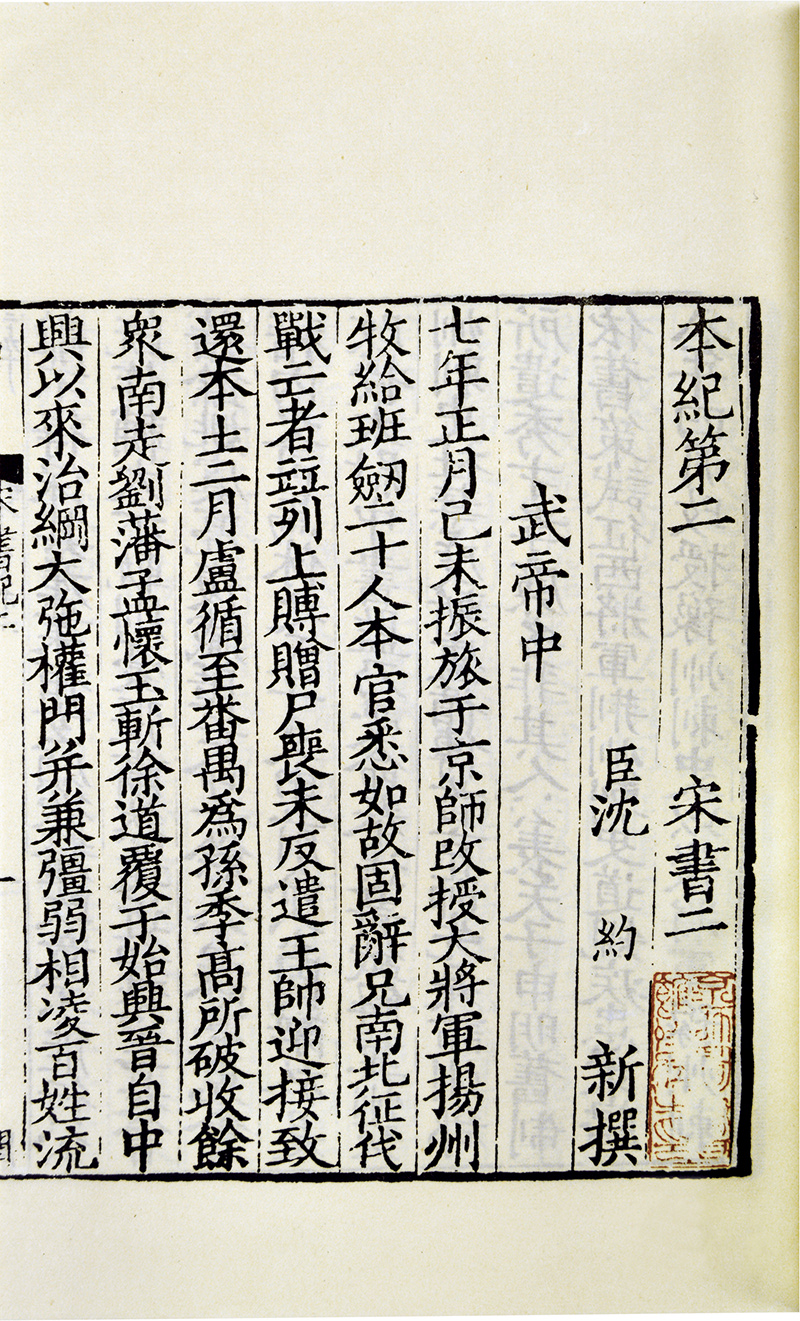 本紀第二 宋書二
臣沈 約 新撰
武帝中
七年正月己未振旅于京師改授大將軍揚州
牧給班劒二十人本官悉如故固辭凡南北征伐
戰亡者並列上賻贈尸喪未反遣王帥迎接致
還本土二月盧循至番禺爲孫季高所破收餘
衆南走劉藩孟懷玉斬徐道覆于始興晉自中
興以來治綱大弛權門并兼彊弱相凌百姓流